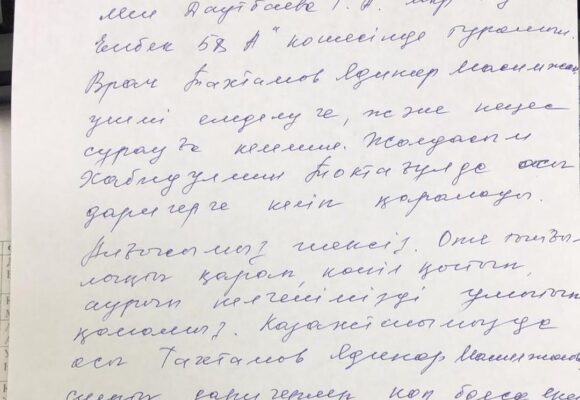 Мен Даутбаева Г. А.
Еңбек 58 А" көшесінде тұрамын.
Врач Тахтамов Ядикар Масимжан
үшін емделуге, және кеңес
сурауға келемін. Жолдасым
Хабидулмин Тоқтағұлда осы
дәрігерге келіп қаралады.
Ризашымыз шексіз. Өте тыңғы-
лықты қарап, көңіл қойып,
ауырып келгенімізді ұмытып
қаламыз. Казакстанымызда
осы Тахтамов Ядикар Масимжанов
дәрігерлер көп болса екен